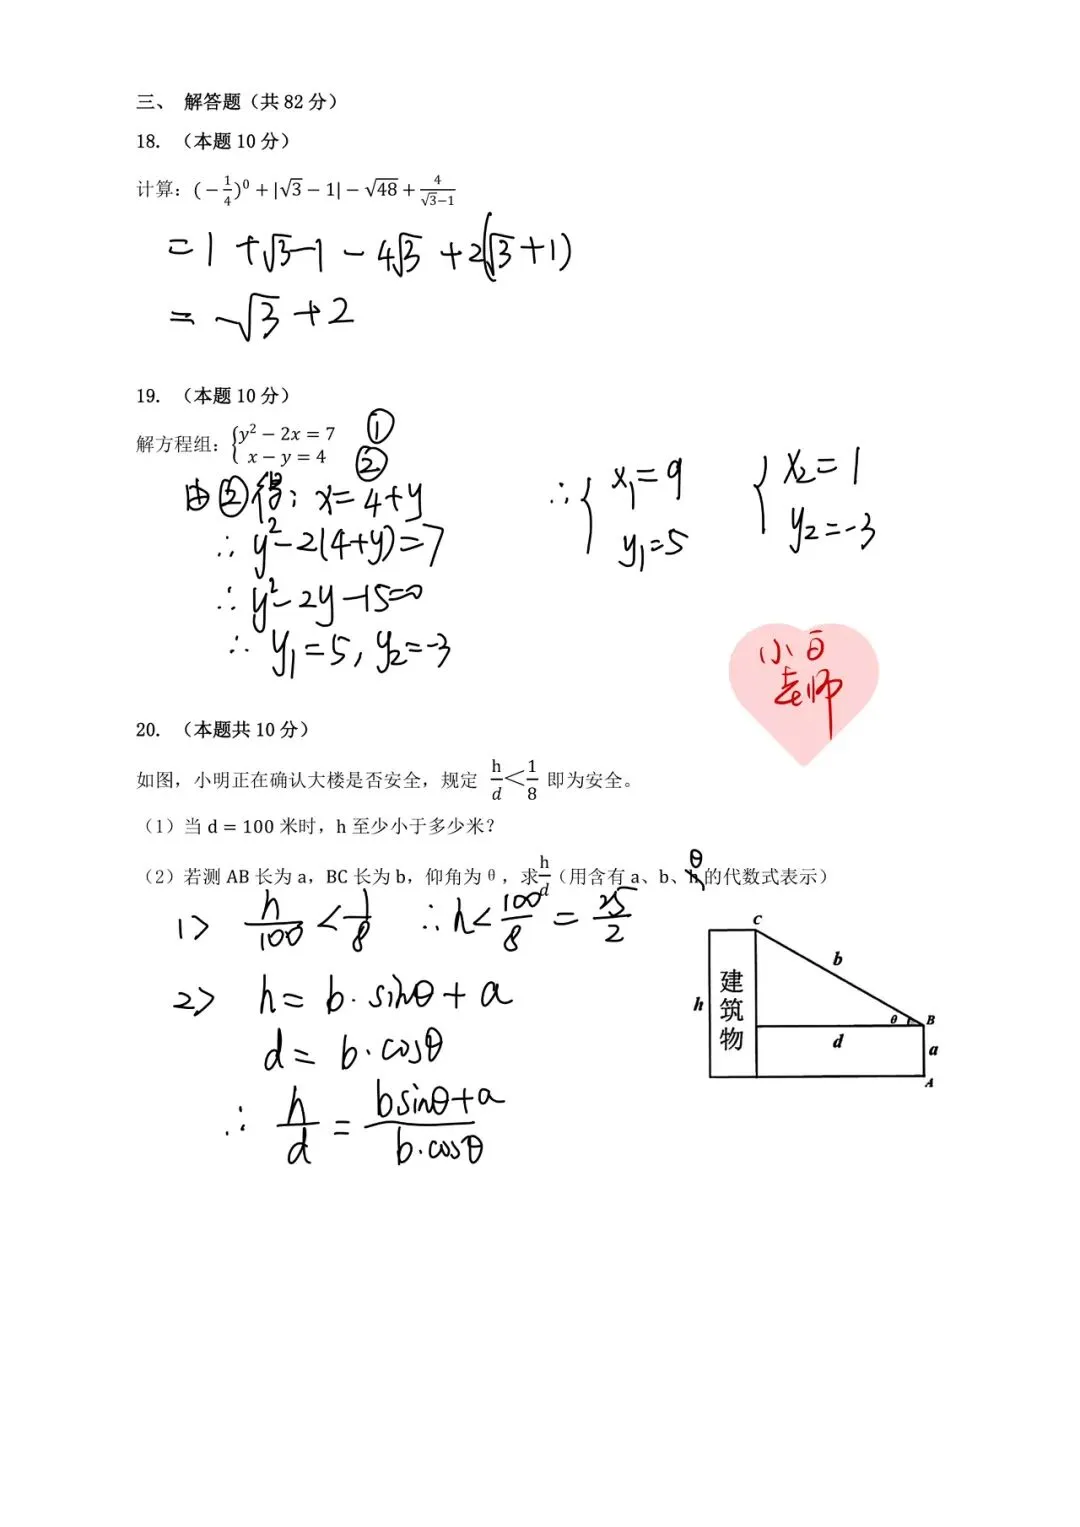 三、 解答题（共 82 分）
18. （本题 10 分）
计算：(−1/4)⁰ + |√3 − 1| − √48 + 4/(√3−1)
= 1 + √3 − 1 − 4√3 + 2(√3 + 1)
= −√3 + 2
19. （本题 10 分）
解方程组：{y² − 2x = 7 ①
x − y = 4 ②
由②得：x = 4 + y
∴ y² − 2(4+y) = 7
∴ y² − 2y − 15 = 0
∴ y₁ = 5, y₂ = −3
∴ { x₁ = 9 { x₂ = 1
y₁ = 5 y₂ = −3
小百
老师
20. （本题共 10 分）
如图，小明正在确认大楼是否安全，规定 h/d < 1/8 即为安全。
（1）当 d = 100 米时，h 至少小于多少米？
（2）若测 AB 长为 a，BC 长为 b，仰角为 θ，求 h/d（用含有 a、b、θ 的代数式表示）
1> h/100 < 1/8 ∴ h < 100/8 = 25/2
2> h = b · sinθ + a
d = b · cosθ
∴ h/d = (b sinθ + a)/(b · cosθ)
C
b
建筑物
h
θ
B
d
a
A